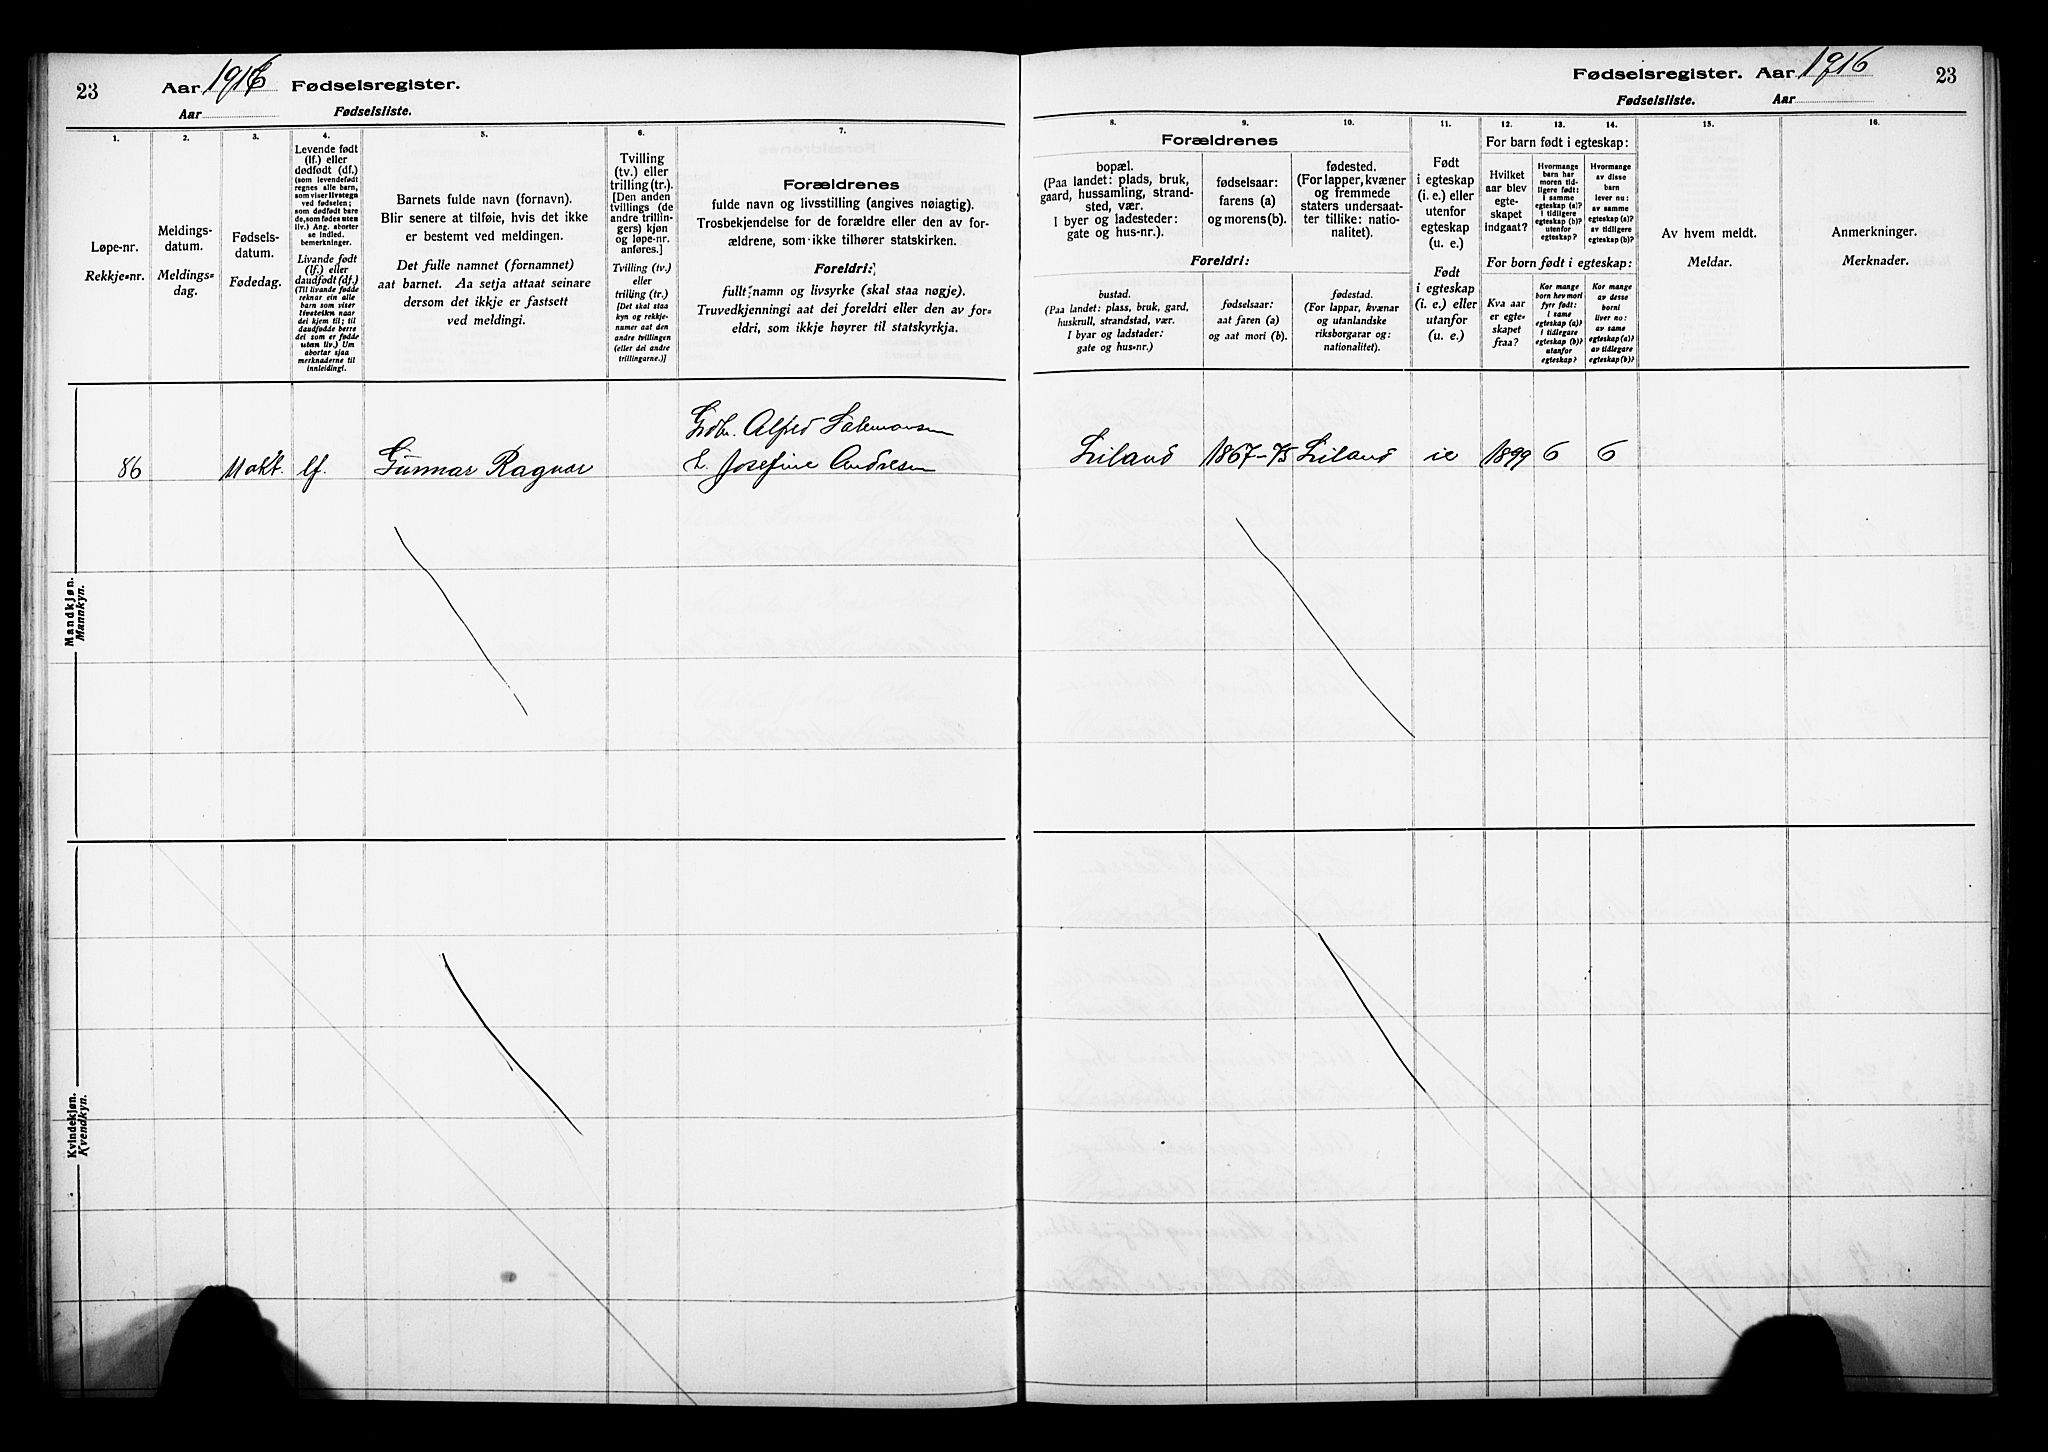 23 Aar 1916 Fødselsregister.
Aar Fødselsliste.
1. 2. 3. 4. 5. 6. 7.
Løpe-nr.
Rekkje=nr.
Meldings-
datum.
Meldings=
dag.
Fødsels-
datum.
Fødedag.
Levende født
(lf.) eller
dødfødt (df.)
(som levendefødt
regnes alle barn,
som viser livstegn
ved fødselen;
som dødfødt bare
de, som fødes uten
liv.) Ang. aborter
se indled.
bemerkninger.
Livande født
(lf.) eller
daudfødt (df.)
(Til livande fødde
reknar ein alle
barn som viser
livsteikn naar
dei kjem til; til
daudfødde berre
dei som er fødde
utan liv.) Um
abortar sjaa
merknaderne til
innleidingi.
Barnets fulde navn (fornavn).
Blir senere at tilføie, hvis det ikke
er bestemt ved meldingen.
Det fulle namnet (fornamnet)
aat barnet. Aa setja attaat seinare
dersom det ikkje er fastsett
ved meldingi.
Tvilling
(tv.) eller
trilling (tr.).
[Den anden
tvillings (de
andre trillin-
gers) kjøn
og løpe-nr.
anføres.]
Tvilling (tv.)
eller
trilling (tr.)
[Det skal staa
kyn og rekkje-
numer aat den
andre tvillingen
(eller dei andre
trillingarne.)]
Forældrenes
fulde navn og livsstilling (angives nøiagtig).
Trosbekjendelse for de forældre eller den av for-
ældrene, som ikke tilhører statskirken.
Foreldri:
fullt namn og livsyrke (skal staa nøgje).
Truvedkjenningi aat dei foreldri eller den av for=
eldri, som ikkje høyrer til statskyrkja.
Mandkjøn.
Mannkyn.
86 11 okt. lf. Gunnar Ragnar
Gdbr. Alfred Salomonsen
h. Josefine Andresen
Kvindekjøn.
Kvendkyn.
Fødselsregister. Aar 1916 23
Fødselsliste. Aar
8. 9. 10. 11. 12. 13. 14. 15. 16.
Forældrenes
bopæl.
(Paa landet: plads, bruk,
gaard, hussamling, strand-
sted, vær.
I byer og ladesteder:
gate og hus-nr.).
fødselsaar:
farens (a)
og morens (b).
fødested.
(For lapper, kvæner
og fremmede
staters undersaat-
ter tillike: natio-
nalitet).
Foreldri:
bustad.
(Paa landet: plass, bruk, gard,
huskrull, strandstad, vær.
I byar og ladstader:
gate og hus=nr.)
fødselsaar:
aat faren (a)
og aat mori (b).
fødestad.
(For lappar, kvænar
og utanlandske
riksborgarar og:
nationalitet).
Født
i egteskap
(i. e.) eller
utenfor
egteskap
(u. e.)
Født
i egteskap
(i. e.) eller
utanfor
(u. e.)
For barn født i egteskap:
Hvilket
aar blev
egte-
skapet
indgaat?
Hvormange
barn har
moren tid-
ligere født:
i samme
egteskap (a)?
i tidligere
egteskap (b)?
utenfor
egteskap?
Hvormange
av disse
barn
lever nu:
av samme
egteskap (a)?
av tidligere
egteskap (b)?
For born født i egteskap:
Kva aar
er egte-
skapet
fraa?
Kor mange
born hev mori
fyrr født:
i same
egteskap (a)?
i tidlegare
egteskap (b)?
utanfor
egteskap?
Kor mange
av desse
borni
liver no:
av same
egteskap (a)?
av tidlegare
egteskap (b)?
Av hvem meldt.
Meldar.
Anmerkninger.
Merknader.
Liland 1867-75 Liland ie 1899 6 6